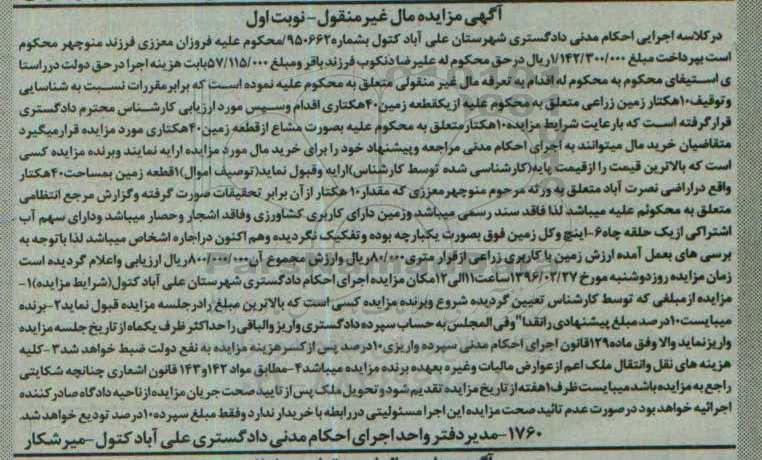 آگهی مزایده مال غیر منقول - نوبت اول
در کلاسه اجرایی احکام مدنی دادگستری شهرستان علی آباد کتول بشماره ۹۵۰۶۶۲/محکوم علیه فروزان معززی فرزند منوچهر محکوم
است بپرداخت مبلغ ۱/۱۴۲/۳۰۰/۰۰۰ریال در حق محکوم له علیرضا دنکوب فرزند باقر ومبلغ ۵۷/۱۱۵/۰۰۰بابت هزینه اجرا در حق دولت در راستا
ی استیفای محکوم به محکوم له اقدام به تعرفه مال غیر منقولی متعلق به محکوم علیه نموده است که برابر مقررات نسبت به شناسایی
وتوقیف۱۰هکتار زمین زراعی متعلق به محکوم علیه از یکقطعه زمین۴۰هکتاری اقدام وسپس مورد ارزیابی کارشناس محترم دادگستری
قرار گرفته است که بارعایت شرایط مزایده۱۰هکتار متعلق به محکوم علیه بصورت مشاع از قطعه زمین۴۰هکتاری مورد مزایده قرار میگیرد
متقاضیان خرید مال میتوانند به اجرای احکام مدنی مراجعه وپیشنهاد خود را برای خرید مال مورد مزایده ارایه نمایند وبرنده مزایده کسی
است که بالاترین قیمت را ازقیمت پایه(کارشناسی شده توسط کارشناس)ارایه وقبول نماید(توصیف اموال)۱قطعه زمین بمساحت۴۰هکتار
واقع دراراضی نصرت آباد متعلق به ورثه مرحوم منوچهر معززی که مقدار۱۰ هکتار از آن برابر تحقیقات صورت گرفته وگزارش مرجع انتظامی
متعلق به محکوئم علیه میباشد لذا فاقد سند رسمی میباشد وزمین دارای کاربری کشاورزی وفاقد اشجار وحصار میباشد ودارای سهم آب
اشتراکی از یک حلقه چاه۶-اینچ وکل زمین فوق بصورت یکپارچه بوده وتفکیک نگردیده وهم اکنون دراجاره اشخاص میباشد لذا باتوجه به
برسی های بعمل آمده ارزش زمین با کاربری زراعی ازقرار متری۸۰/۰۰۰ریال وارزش مجموع آن۸/۰۰۰/۰۰۰/۰۰۰ریال ارزیابی واعلام گردیده است
زمان مزایده روز دوشنبه مورخ ۱۳۹۶/۰۲/۲۷ساعت۱۱الی۱۲مکان مزایده اجرای احکام دادگستری شهرستان علی آباد کتول(شرایط مزایده)۱-
مزایده از مبلغی که توسط کارشناس تعیین گردیده شروع وبرنده مزایده کسی است که بالاترین مبلغ رادر جلسه مزایده قبول نماید۲-برنده
میبایست۱۰درصد مبلغ پیشنهادی رانقدا"وفی المجلس به حساب سپرده دادگستری واریز والباقی را حداکثر ظرف یکماه از تاریخ جلسه مزایده
واریز نماید والا وفق ماده۱۲۹قانون اجرای احکام مدنی سپرده واریزی۱۰درصد پس از کسر هزینه مزایده به نفع دولت ضبط خواهد شد۳-کلیه
هزینه های نقل وانتقال ملک اعم از عوارض مالیات وغیره بعهده برنده مزایده میباشد۴-مطابق مواد ۱۴۲و۱۴۳ قانون اشعاری چنانچه شکایتی
راجع به مزایده باشد میبایست ظرف۱هفته از تاریخ مزایده تقدیم شود وتحویل ملک پس از تایید صحت جریان مزایده ازناحیه دادگاه صادرکننده
اجرائیه خواهد بود درصورت عدم تائید صحت مزایده این اجرا مسئولیتی دررابطه با خریدار ندارد وفقط مبلغ سپرده۱۰درصد تودیع خواهد شد.
۱۷۶۰-مدیر دفتر واحد اجرای احکام مدنی دادگستری علی آباد کتول-میر شکار